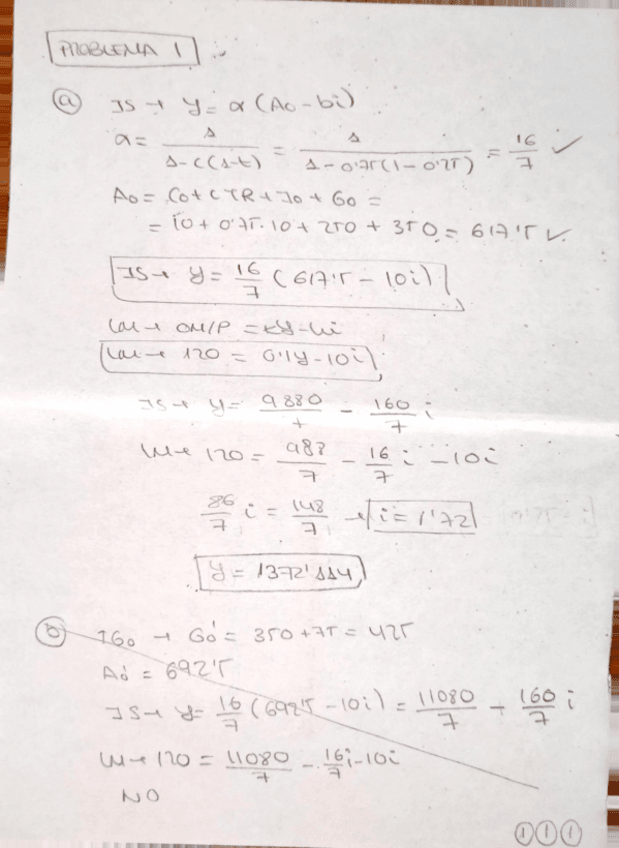 PROBLEMA 1
a) IS → y = α (A0 - bi)
α = 1 / (1 - c(1-t)) = 1 / (1 - 0'75(1 - 0'25)) = 16/7 ✓
A0 = C0 + cTR + I0 + G0 =
= 10 + 0'75·10 + 250 + 350 = 617'5 ✓
IS → y = 16/7 (617'5 - 10i)
LM → OM/P = ky - hi
LM → 120 = 0'1y - 10i
IS → y = 9880/7 - 160/7 i
LM → 120 = 988/7 - 16/7 i - 10i
86/7 i = 148/7 → i = 1'72
y = 1372'114
b) ↑G0 → G0' = 350 + 75 = 425
A0' = 692'5
IS → y = 16/7 (692'5 - 10i) = 11080/7 - 160/7 i
LM → 120 = 11080/7 - 16/7 i - 10i
NO
1 1 1